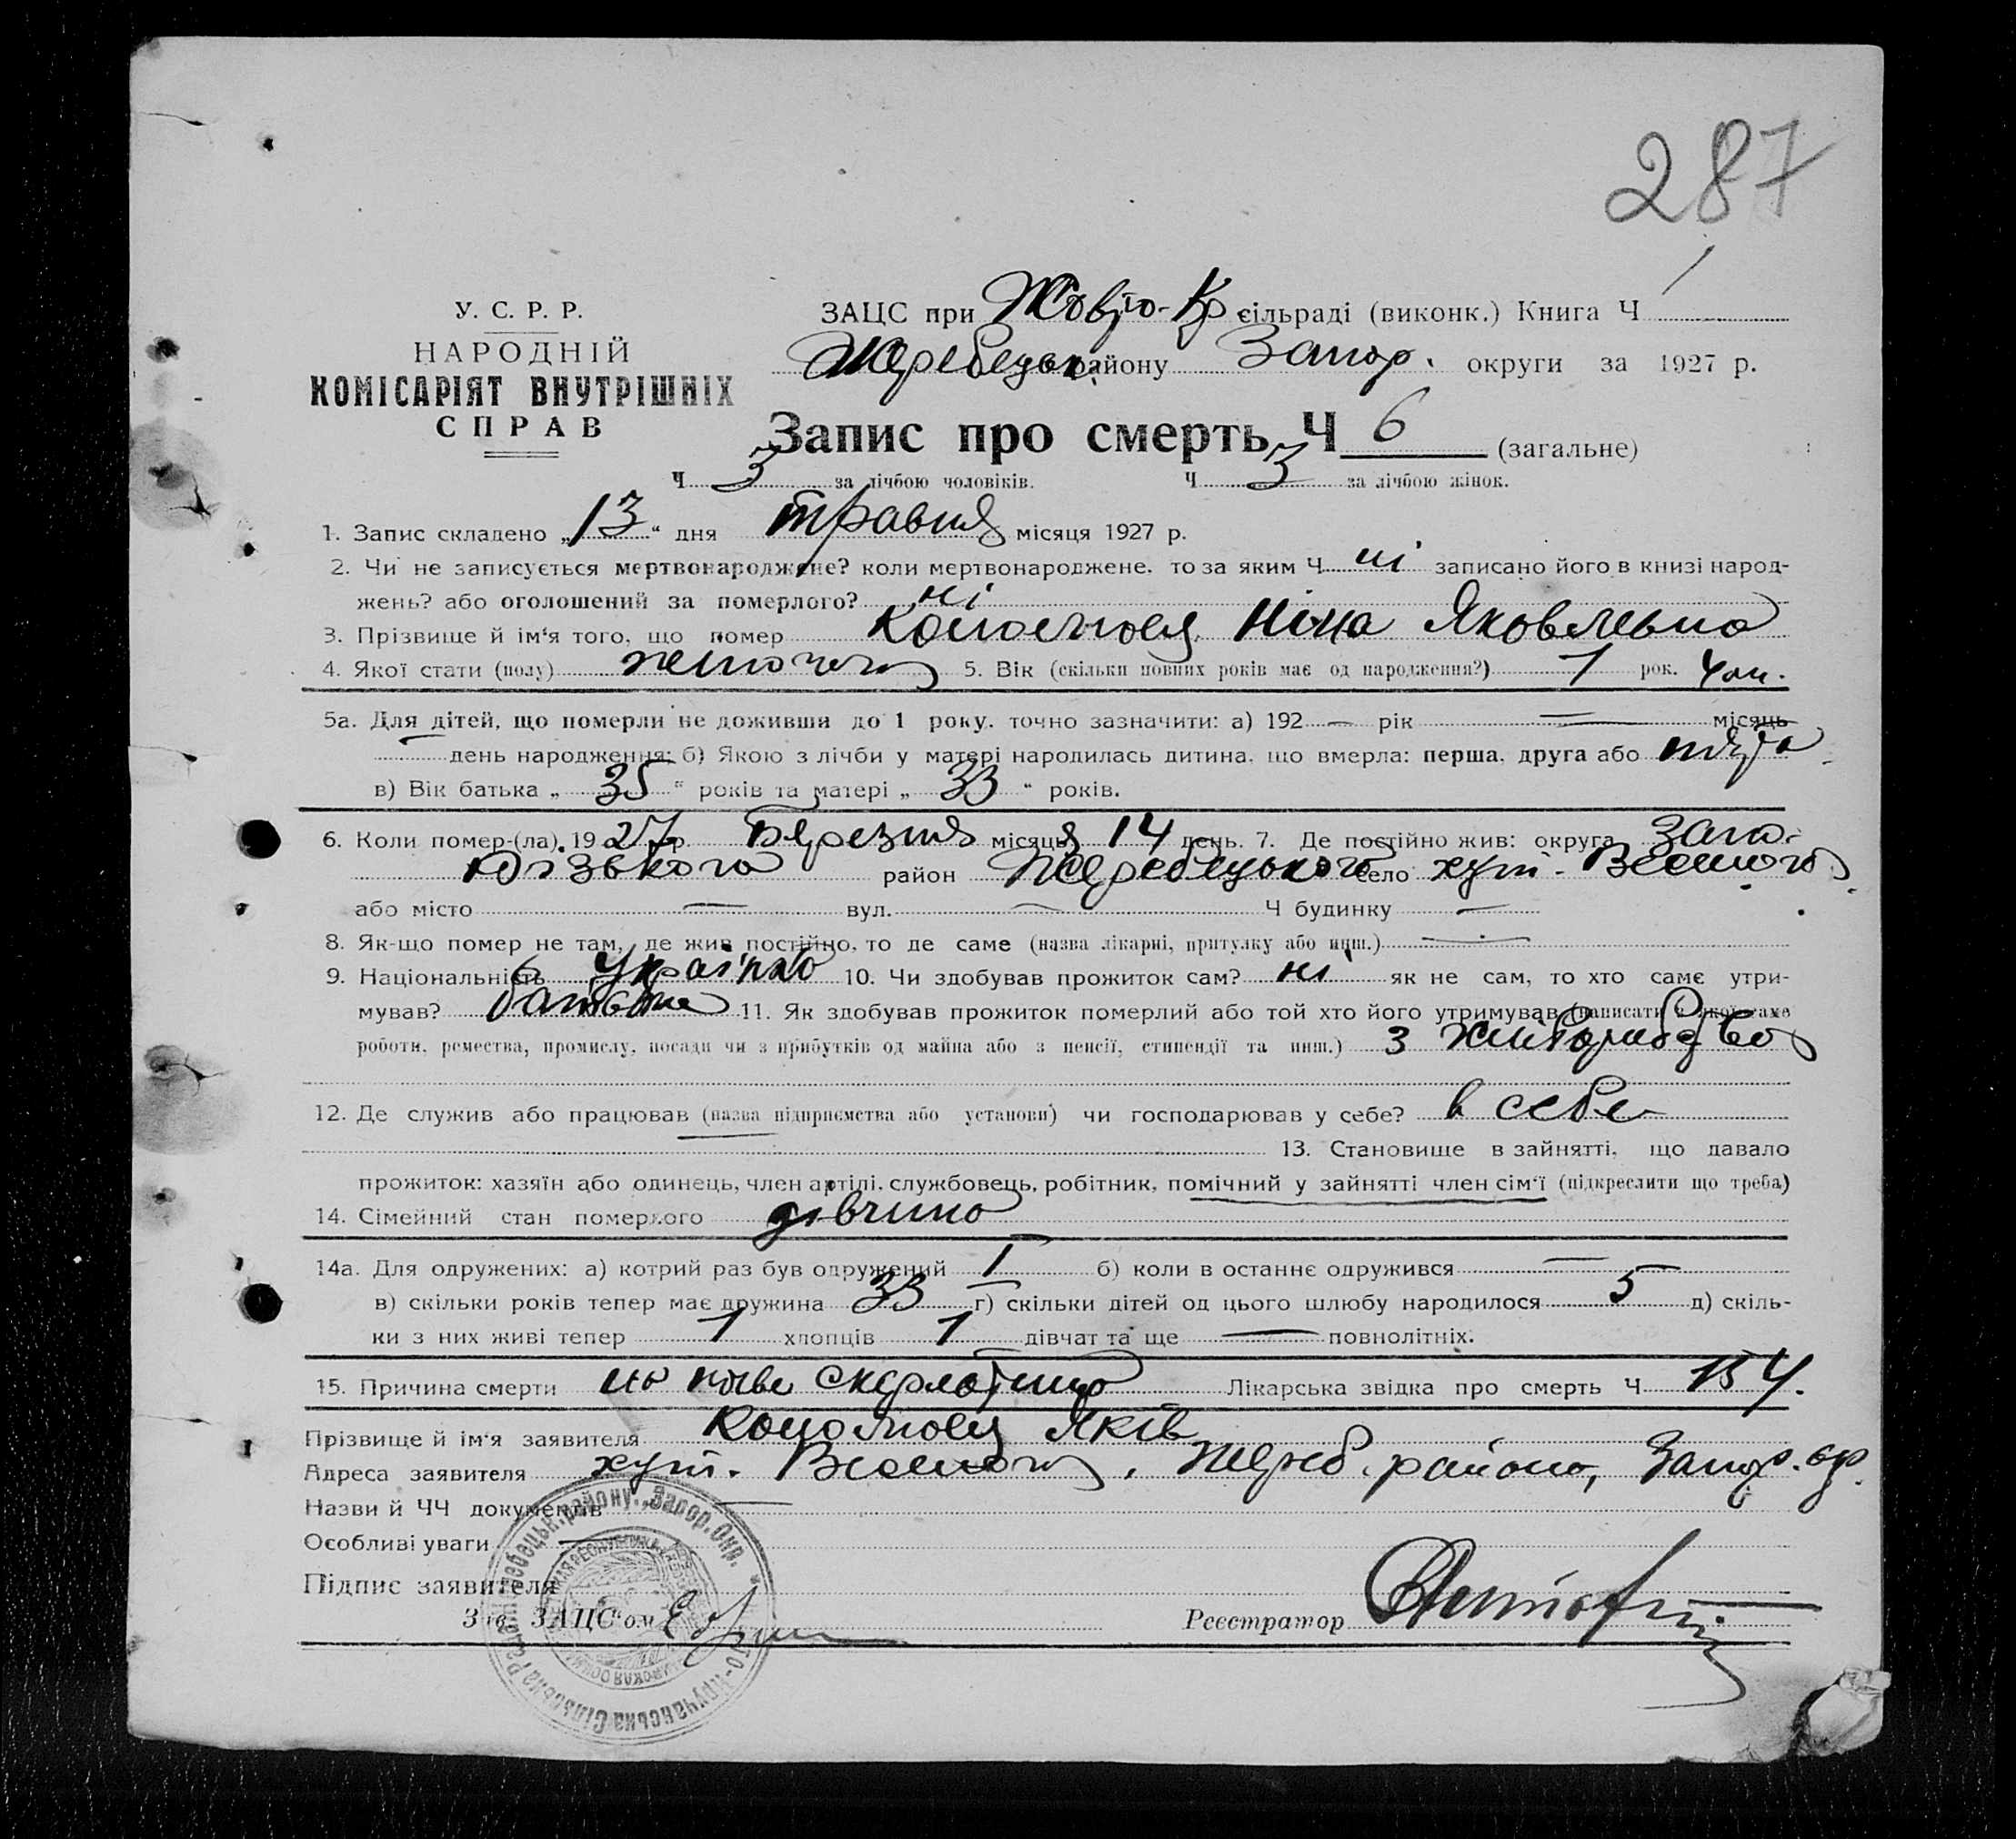 287
У. С. Р. Р.
НАРОДНІЙ
КОМІСАРІЯТ ВНУТРІШНІХ
СПРАВ
ЗАЦС при Жовто-Кр сільраді (виконк.) Книга Ч 1
Жеребецьк. району Запор. округи за 1927 р.
Запис про смерть Ч 6 (загальне)
Ч 3 за лічбою чоловіків. Ч 3 за лічбою жінок.
1. Запис складено „13“ дня травня місяця 1927 р.
2. Чи не записується мертвонароджене? коли мертвонароджене, то за яким Ч ні записано його в книзі народ-
жень? або оголошений за померлого? ні
3. Прізвище й ім‘я того, що помер Ніна Яковлевна
4. Якої стати (полу) 5. Вік (скільки повних років має од народження?) 1 рок. 4 м.
5а. Для дітей, що померли не доживши до 1 року, точно зазначити: а) 192 — рік — місяць
— день народження; б) Якою з лічби у матері народилась дитина, що вмерла: перша, друга або
в) Вік батька „35“ років та матері „33“ років.
6. Коли помер-(ла) 1927 р. Березня місяця 14 день. 7. Де постійно жив: округа Запо-
різького район Жеребецького село хут.
або місто — вул. — Ч будинку —
8. Як-що помер не там, де жив постійно, то де саме (назва лікарні, притулку або инш.) —
9. Національність Українка 10. Чи здобував прожиток сам? ні як не сам, то хто саме утри-
мував? батько 11. Як здобував прожиток померлий або той хто його утримував (написати з якої саме
роботи, ремества, промислу, посади чи з прибутків од майна або з пенсії, стипендії та инш.) з хліборобства
12. Де служив або працював (назва підприємства або установи) чи господарював у себе? в себе
13. Становище в зайнятті, що давало
прожиток: хазяїн або одинець, член артілі, службовець, робітник, помічний у зайнятті член сім‘ї (підкреслити що треба)
14. Сімейний стан померлого дівчина
14а. Для одружених: а) котрий раз був одружений I б) коли в останнє одружився —
в) скільки років тепер має дружина 33 г) скільки дітей од цього шлюбу народилося 5 д) скіль-
ки з них живі тепер 1 хлопців 1 дівчат та ще — повнолітніх.
15. Причина смерти Лікарська звідка про смерть Ч 154.
Прізвище й ім‘я заявителя Яків
Адреса заявителя хут. Жереб. району, Запор. окр.
Назви й ЧЧ документів —
Особливі уваги —
Підпис заявителя
Зав. ЗАЦС‘ом
Реєстратор